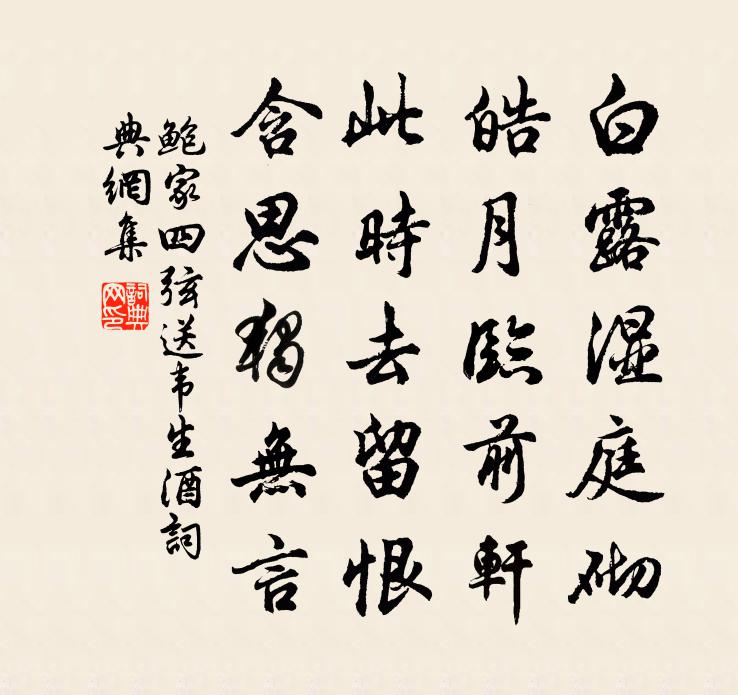 白露湿庭砌
皓月臨前軒
此時去留恨
含思獨無言
鮑家四弦送韦生酒詞
典網集
詞典
网印